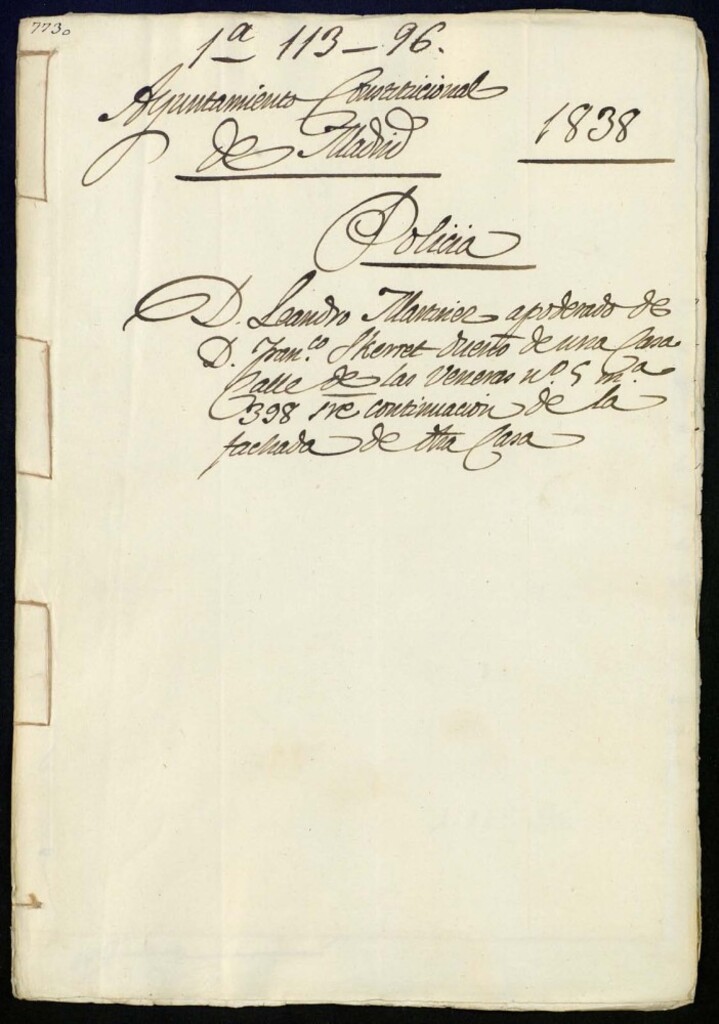 773
1ª 113-96.
Ayuntamiento Constitucional
de Madrid
1838
Policia
D. Leandro Martinez apoderado de
D. Fran.co Skerret dueño de una Casa
Calle de las Veneras nº. 5 m.ª
398 sre continuacion de la
fachada de dha Casa